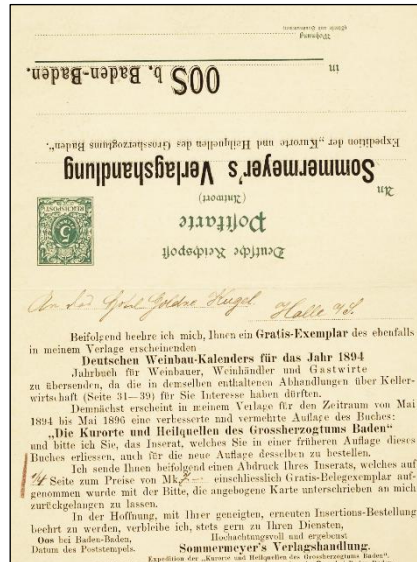 Deutsche Reichspost
Postkarte
(Antwort)
REICHSPOST
5
An
Sommermeyer's Verlagshandlung
Expedition der „Kurorte und Heilquellen des Grossherzogtums Baden“.
in
OOS b. Baden-Baden.
Wohnung
An das Hotel Goldne Kugel Halle a/S.
Beifolgend beehre ich mich, Ihnen ein Gratis-Exemplar des ebenfalls
in meinem Verlage erscheinenden
Deutschen Weinbau-Kalenders für das Jahr 1894
Jahrbuch für Weinbauer, Weinhändler und Gastwirte
zu übersenden, da die in demselben enthaltenen Abhandlungen über Keller-
wirtschaft (Seite 31—39) für Sie Interesse haben dürften.
Demnächst erscheint in meinem Verlage für den Zeitraum von Mai
1894 bis Mai 1896 eine verbesserte und vermehrte Auflage des Buches:
„Die Kurorte und Heilquellen des Grossherzogtums Baden“
und bitte ich Sie, das Inserat, welches Sie in einer früheren Auflage dieses
Buches erliessen, auch für die neue Auflage desselben zu bestellen.
Ich sende Ihnen beifolgend einen Abdruck Ihres Inserats, welches auf
1/4 Seite zum Preise von Mk 7— einschliesslich Gratis-Belegexemplar auf-
genommen wurde mit der Bitte, die angebogene Karte unterschrieben an mich
zurückgelangen zu lassen.
In der Hoffnung, mit Ihrer geneigten, erneuten Insertions-Bestellung
beehrt zu werden, verbleibe ich, stets gern zu Ihren Diensten,
Oos bei Baden-Baden, Hochachtungsvoll und ergebenst
Datum des Poststempels. Sommermeyer's Verlagshandlung.
Expedition der „Kurorte und Heilquellen des Grossherzogtums Baden“.